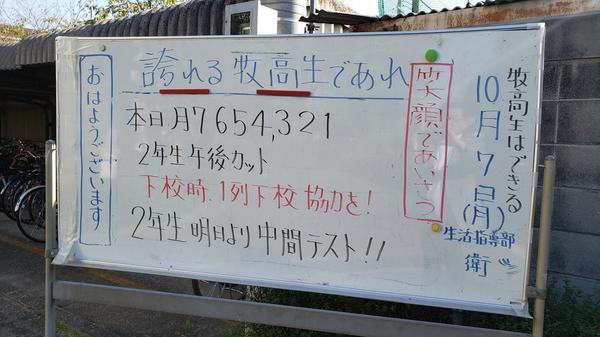 牧高生はできる
10月7日(月)
生活指導部
衛
笑顔であいさつ
誇れる牧高生であれ
本日月7654,321
2年生午後カット
下校時、1列下校協力を!
2年生明日より中間テスト!!
おはようございます